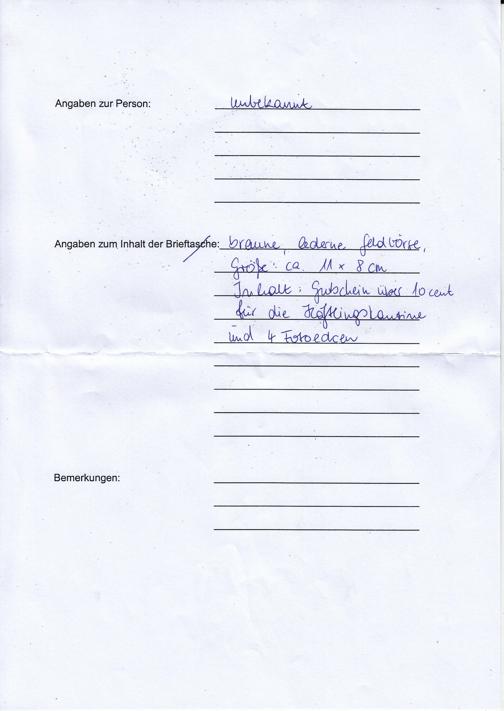 Angaben zur Person: unbekannt
Angaben zum Inhalt der Brieftasche: braune, lederne Geldbörse,
Größe: ca. 11 x 8 cm
Inhalt: Gutschein über 10 cent
für die Häftlingskantine
und 4 Fotoecken
Bemerkungen: